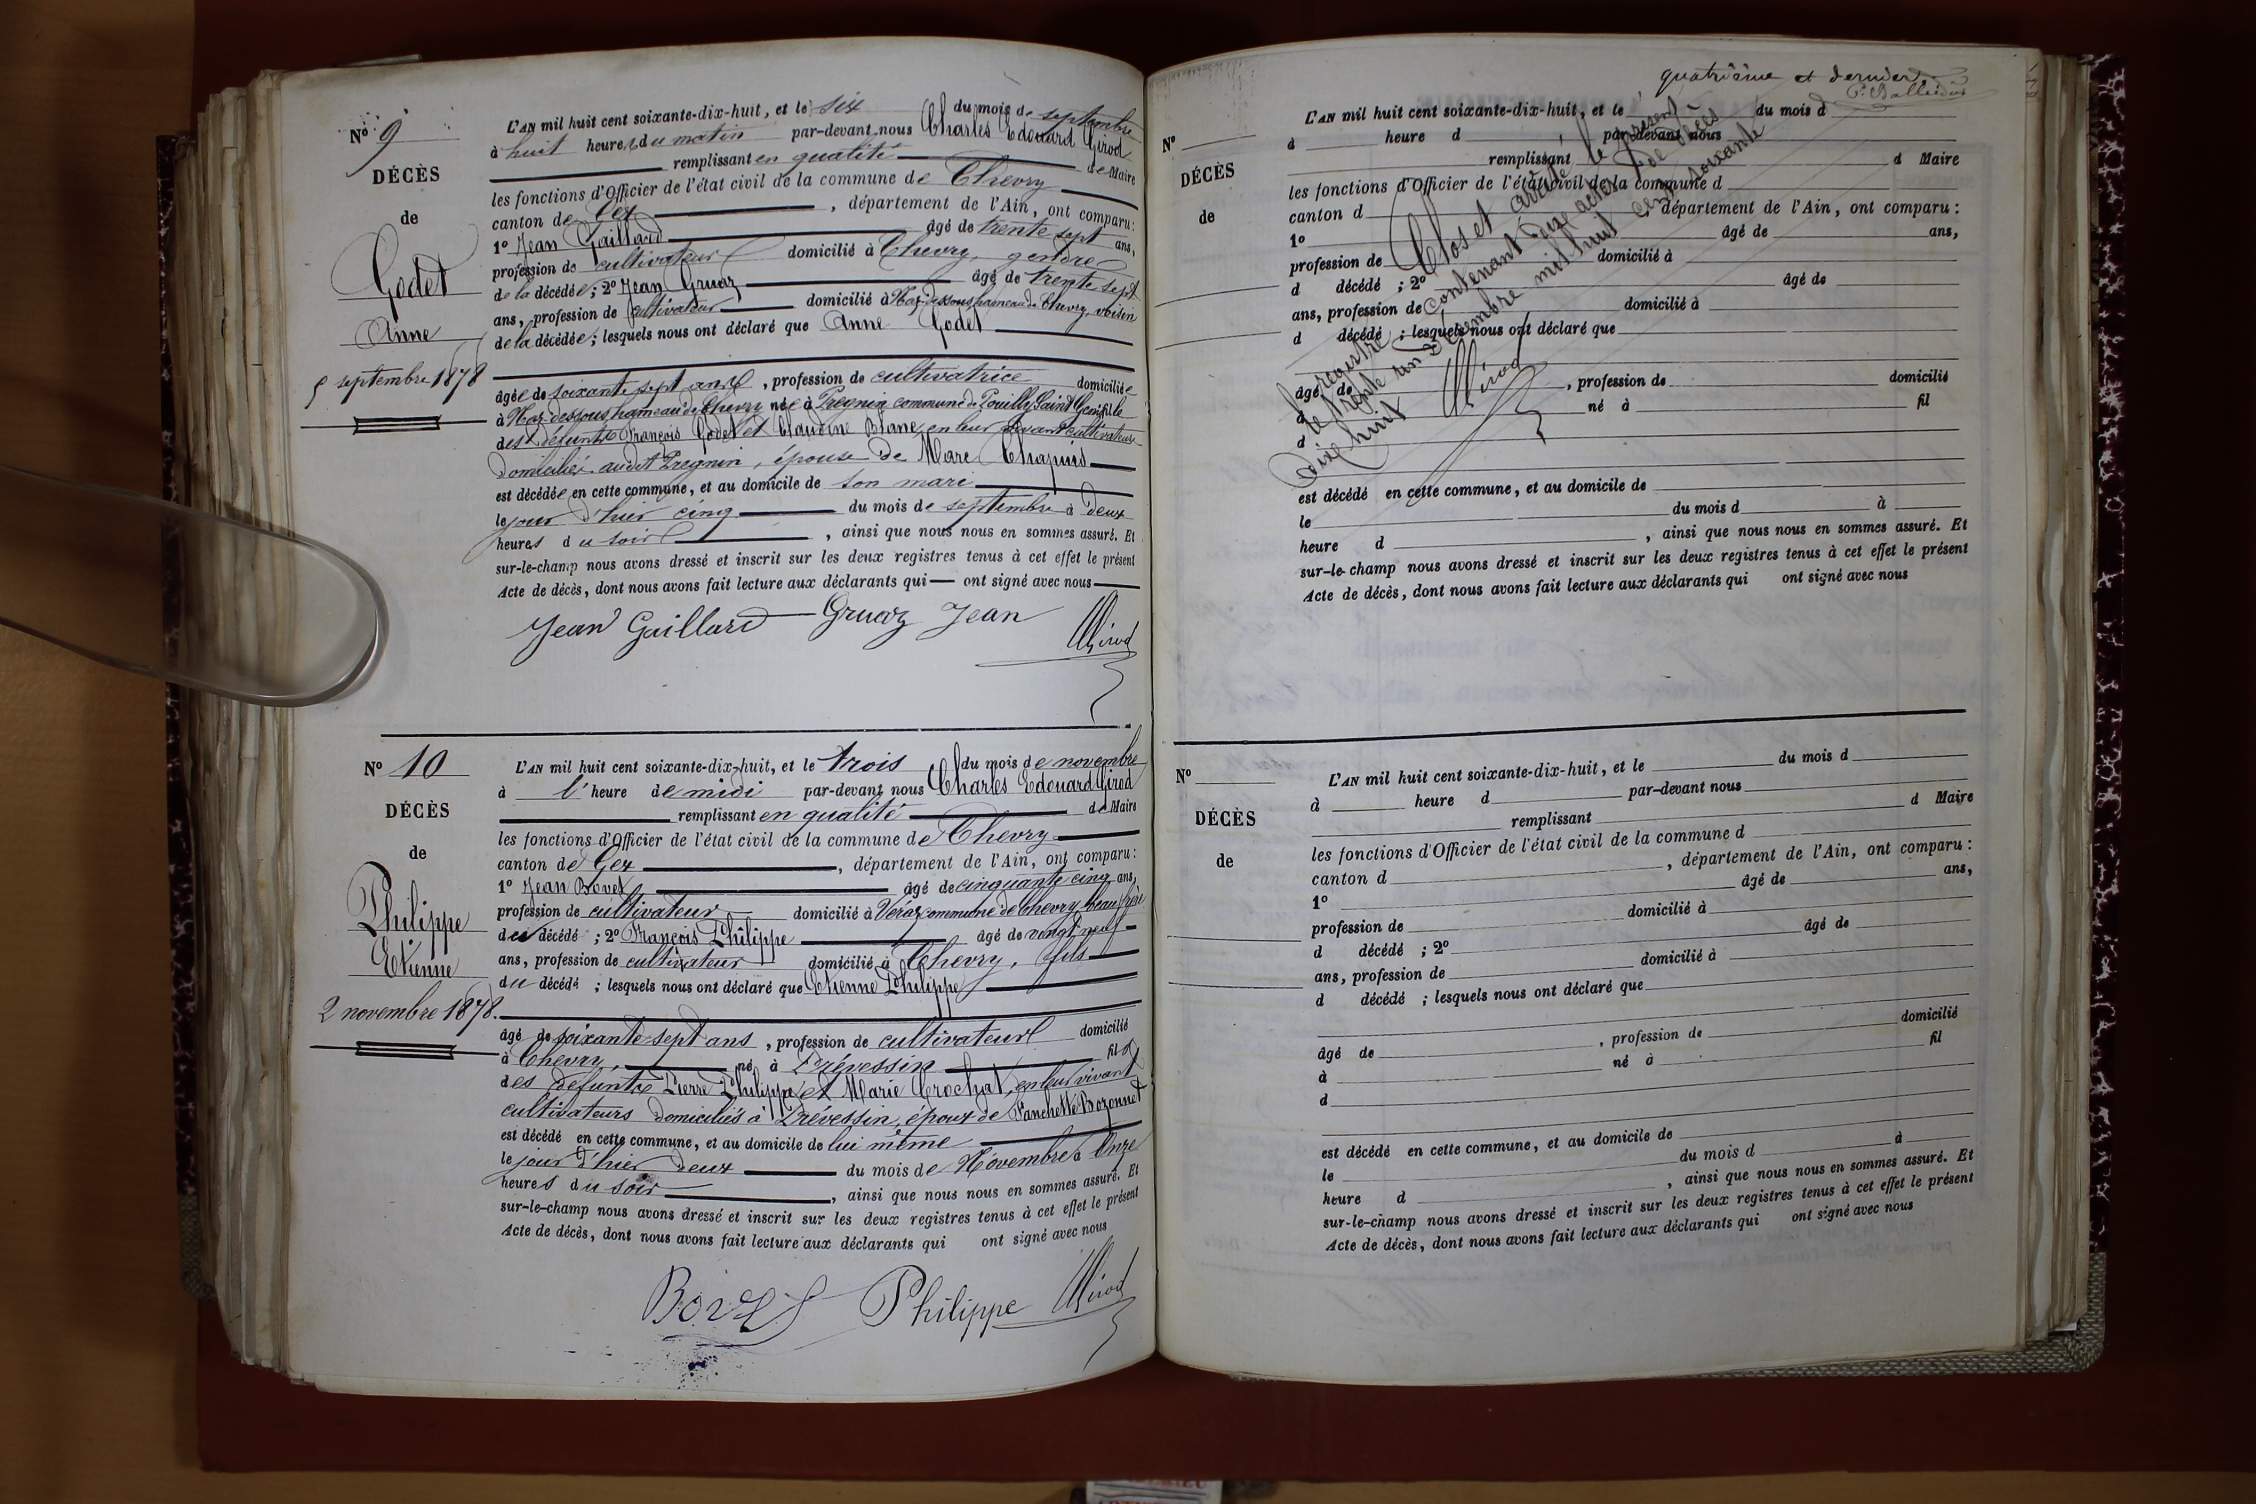 N° 9
DÉCÈS
de
Godet
Anne
5 septembre 1878
L'AN mil huit cent soixante-dix-huit, et le six du mois de septembre
à huit heures du matin par-devant nous Charles Edouard Girod
remplissant en qualité de Maire
les fonctions d'Officier de l'état civil de la commune de Chevry
canton de Gex, département de l'Ain, ont comparu :
1° Jean Gaillard âgé de trente sept ans,
profession de cultivateur domicilié à Chevry, gendre
de la décédée ; 2° Jean Gruaz âgé de trente sept
ans, profession de cultivateur domicilié à Naz-dessous hameau de Chevry, voisin
de la décédée ; lesquels nous ont déclaré que Anne Godet
âgée de soixante sept ans, profession de cultivatrice domiciliée
à Naz-dessous hameau de Chevry née à Pregnin commune de Pouilly Saint Genis fille
des défunts François Godet et Claudine Blanc, en leur vivant cultivateurs
domiciliés audit Pregnin, épouse de Marc Chapuis
est décédée en cette commune, et au domicile de son mari
le jour d'hier cinq du mois de septembre à deux
heures du soir, ainsi que nous nous en sommes assuré. Et
sur-le-champ nous avons dressé et inscrit sur les deux registres tenus à cet effet le présent
Acte de décès, dont nous avons fait lecture aux déclarants qui ont signé avec nous
Jean Gaillard Gruaz Jean Girod
N° 10
DÉCÈS
de
Philippe
Etienne
2 novembre 1878.
L'AN mil huit cent soixante-dix-huit, et le trois du mois de novembre
à l' heure de midi par-devant nous Charles Edouard Girod
remplissant en qualité de Maire
les fonctions d'Officier de l'état civil de la commune de Chevry
canton de Gex, département de l'Ain, ont comparu :
1° Jean Bovet âgé de cinquante cinq ans,
profession de cultivateur domicilié à Véraz commune de Chevry, beau frère
du décédé ; 2° François Philippe âgé de vingt neuf
ans, profession de cultivateur domicilié à Chevry, fils
du décédé ; lesquels nous ont déclaré que Etienne Philippe
âgé de soixante-sept ans, profession de cultivateur domicilié
à Chevry né à Prévessin fils
des défunts Pierre Philippe et Marie Crochat, en leur vivant
cultivateurs domiciliés à Prévessin, époux de Fanchette Bozonnet
est décédé en cette commune, et au domicile de lui même
le jour d'hier deux du mois de Novembre à Onze
heures du soir, ainsi que nous nous en sommes assuré. Et
sur-le-champ nous avons dressé et inscrit sur les deux registres tenus à cet effet le présent
Acte de décès, dont nous avons fait lecture aux déclarants qui ont signé avec nous
Bovet Philippe Girod
quatrième et dernier
N°
DÉCÈS
de
L'AN mil huit cent soixante-dix-huit, et le du mois d
à heure d par-devant nous
remplissant d Maire
les fonctions d'Officier de l'état civil de la commune d
canton d , département de l'Ain, ont comparu :
1° âgé de ans,
profession de domicilié à
d décédé ; 2° âgé de
ans, profession de domicilié à
d décédé ; lesquels nous ont déclaré que
âgé de , profession de domicilié
à né à fil
d
est décédé en cette commune, et au domicile de
le du mois d à
heure d , ainsi que nous nous en sommes assuré. Et
sur-le-champ nous avons dressé et inscrit sur les deux registres tenus à cet effet le présent
Acte de décès, dont nous avons fait lecture aux déclarants qui ont signé avec nous
Clos et arrêté le présent
registre contenant dix actes de décès
le trente un Décembre mil huit cent soixante
dix huit
Girod
N°
DÉCÈS
de
L'AN mil huit cent soixante-dix-huit, et le du mois d
à heure d par-devant nous
remplissant d Maire
les fonctions d'Officier de l'état civil de la commune d
canton d , département de l'Ain, ont comparu :
1° âgé de ans,
profession de domicilié à
d décédé ; 2° âgé de
ans, profession de domicilié à
d décédé ; lesquels nous ont déclaré que
âgé de , profession de domicilié
à né à fil
d
est décédé en cette commune, et au domicile de
le du mois d à
heure d , ainsi que nous nous en sommes assuré. Et
sur-le-champ nous avons dressé et inscrit sur les deux registres tenus à cet effet le présent
Acte de décès, dont nous avons fait lecture aux déclarants qui ont signé avec nous